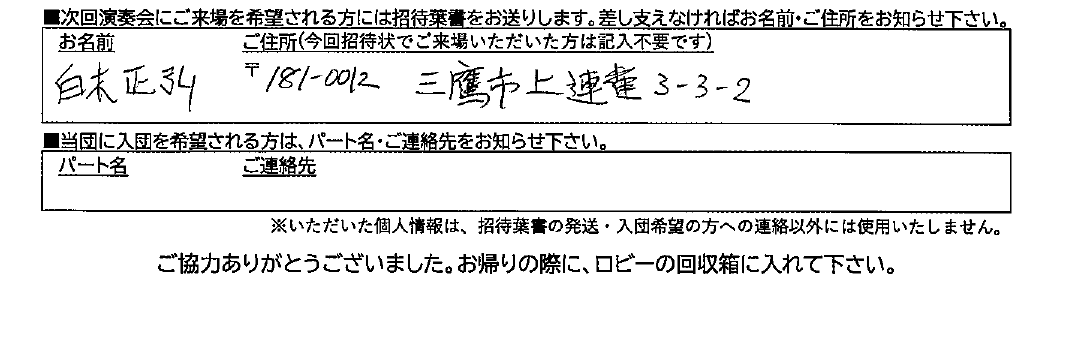 ■次回演奏会にご来場を希望される方には招待葉書をお送りします。差し支えなければお名前・ご住所をお知らせ下さい。
お名前 ご住所(今回招待状でご来場いただいた方は記入不要です)
白木正弘 〒181-0012 三鷹市上連雀3-3-2
■当団に入団を希望される方は、パート名・ご連絡先をお知らせ下さい。
パート名 ご連絡先
※いただいた個人情報は、招待葉書の発送・入団希望の方への連絡以外には使用いたしません。
ご協力ありがとうございました。お帰りの際に、ロビーの回収箱に入れて下さい。